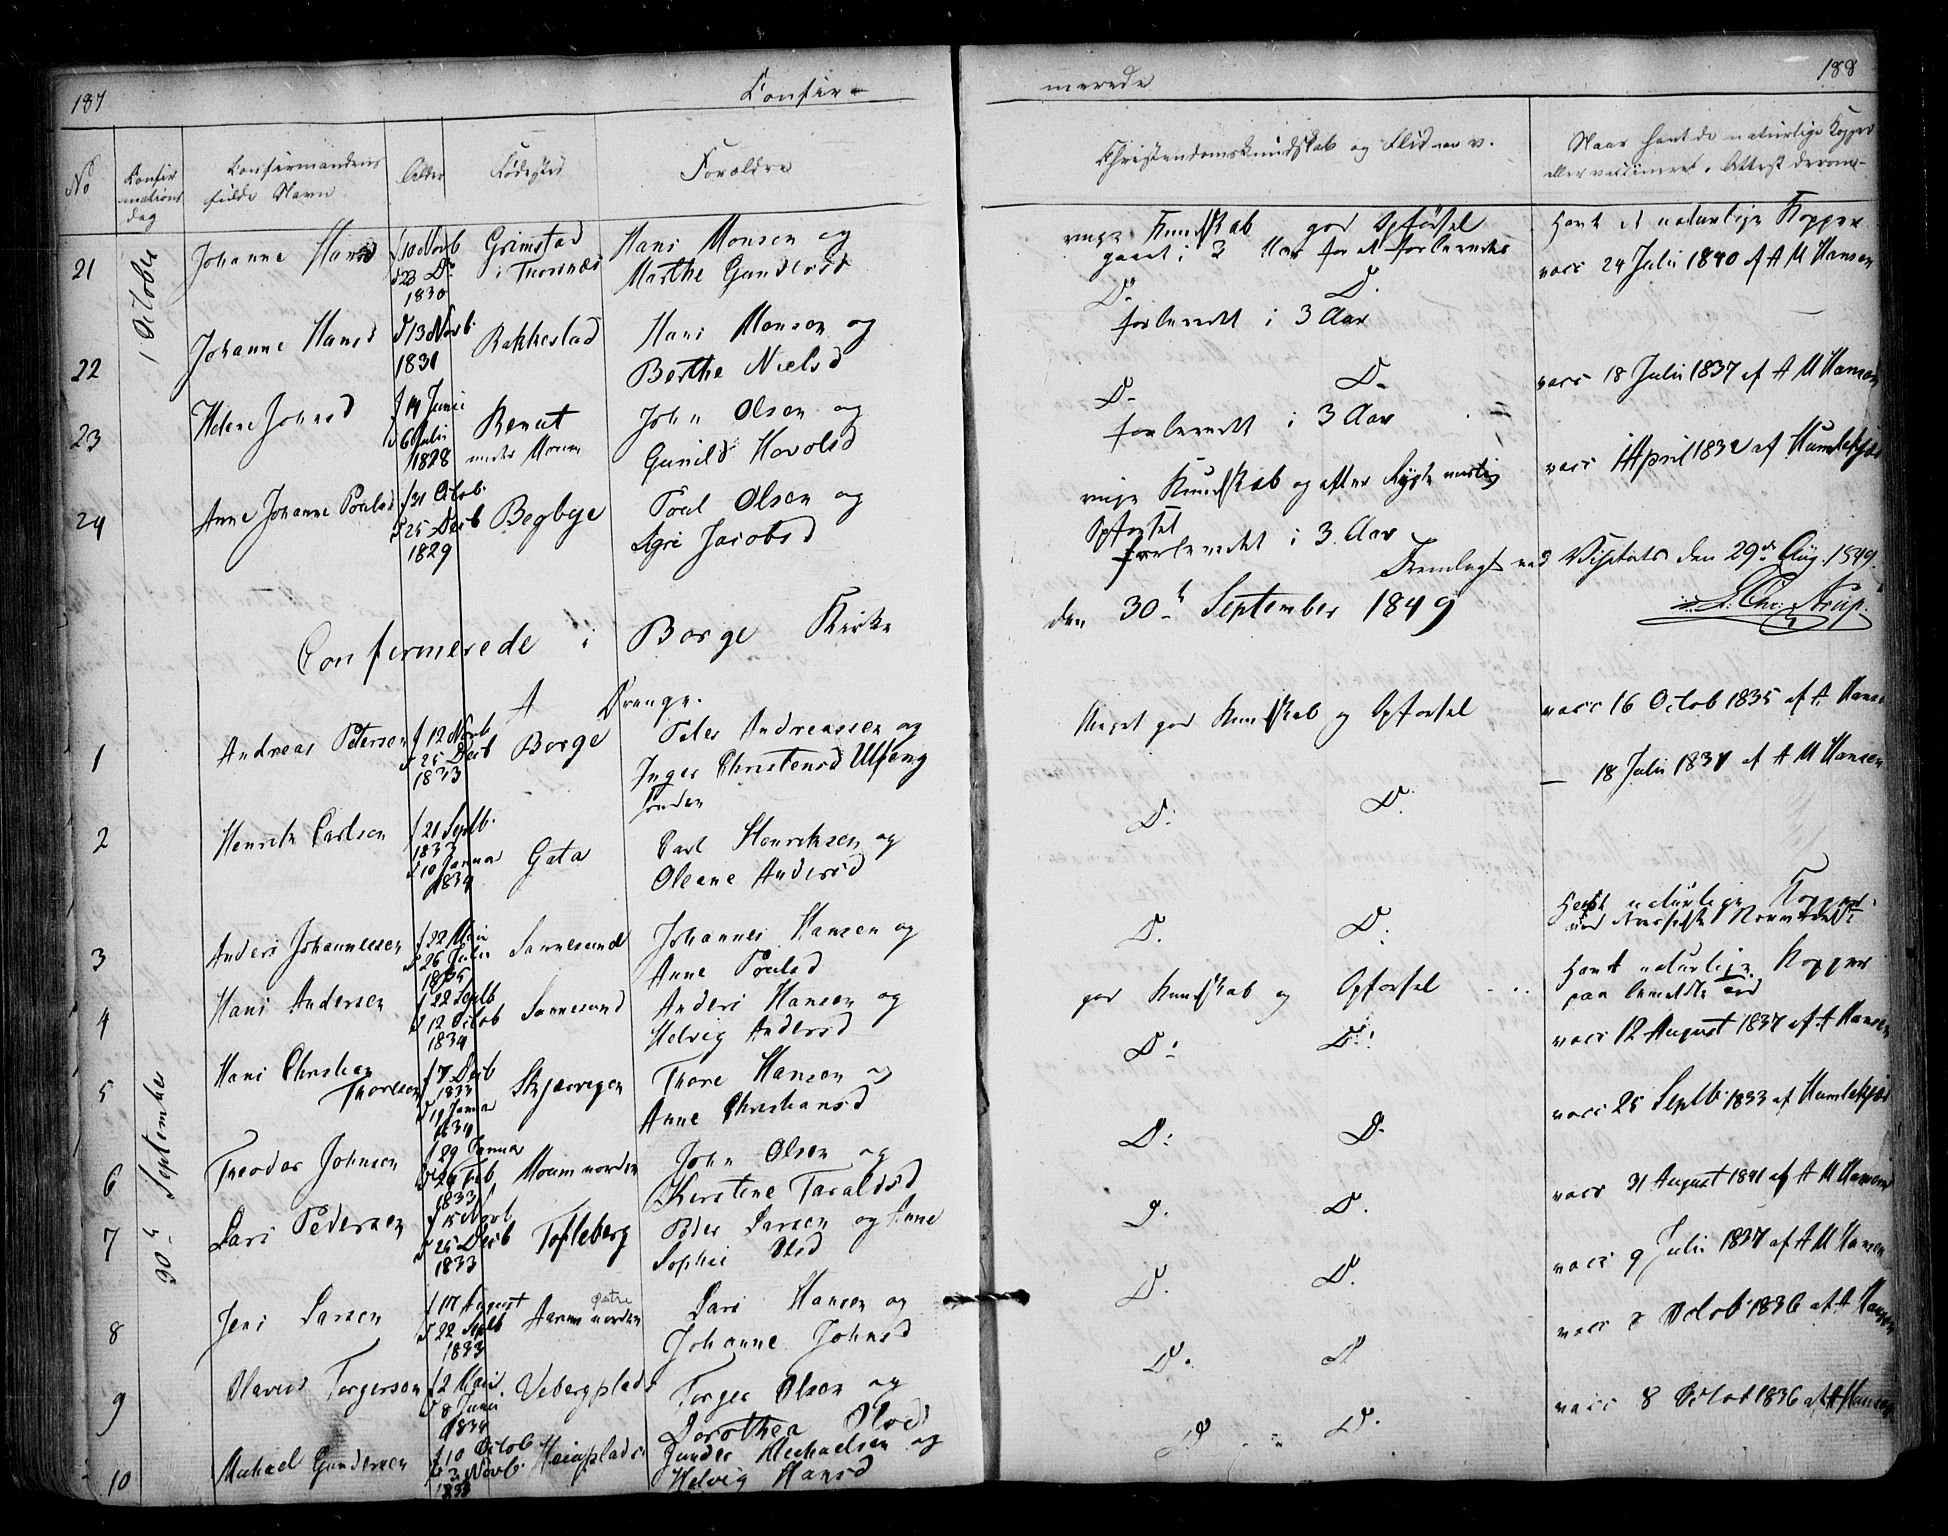 187
Confir-
No
Confir
mations
dag
Confirmandens
fulde Navn
Alder
Fødested
Forældre
1 October
21
Johanne Hansd
f 10 Novb
d 23 Do
1830
Grimstad
i Thorsnæs
Hans Monsen og
Marthe Gundersd
22
Johanne Hansd
d 13 Novb
1831
Rakkestad
Hans Monsen og
Berthe Nielsd
23
Helene Johnsd
f 14 Junii
d 6 Julii
1828
under
John Olsen og
Gunild
24
Anne Johanne Poulsd
f 31 Octob.
d 25 Decb
1829
Begbye
Poul Olsen og
Jacobsd
Confirmerede i Borge Kirke
A Drenge.
30te September
1
Andreas Petersen
f 12 Novb
d 25 Decb
1833
Borge
Peter Andreassen og
Inger Christensd Ulfeng
sønden
2
Henrik Carlsen
f 21 Septb.
1833
d 10 Januar
1834
Gata
Carl Henriksen og
Oleane Andersd
3
Anders Johannesen
f 22 Mai
d 26 Julii
1835
Sannesund
Johannes Hansen og
Anne Poulsd
4
Hans Andersen
f 22 Septb
d 12 Octob
1834
Sannesund
Anders Hansen og
Helvig Andersd
5
Hans Christian
Thoresen
f 7 Decb
1833
d 19 Januar
1834
Skjærvigen
Thore Hansen og
Anne Christiansd
6
Theodor Johnsen
f 29 Januar
d 24 Feb
1833
Moum norden
John Olsen og
Kerstine Taraldsd
7
Lars Pedersen
f 15 Novb.
d 25 Decb
1833
Tofteberg
Peder Larsen og Anne
Sophie Olsd
8
Jens Larsen
f 17 August
d 22 Septb
1833
østre
norden
Lars Hansen og
Johanne Johnsd
9
Olaves Torgersen
f 2 Mai
d 8 Junii
1834
Vebergplads
Torger Olsen og
Dorothea Olsd
10
Michael Gundersen
f 10 Octob
d 3 Novb.
1833
Gunder Michaelsen og
Helvig Hansd
188
merede
Christendomskundskab og Flid m. v.
Naar havt de naturlige Kopper
eller vaccineret, Attest derom
Kundskab god Opførsel
gaaet i 3 Aar forberedes
Havt d naturlige Kopper
D. D.
forberedt i 3 Aar
vacc 24 Julii 1840 af A M Hansen
D. D.
forberedt i 3 Aar
vacc 18 Julii 1837 af A M Hansen
Kundskab og efter Rygte
Opførsel
forberedt i 3 Aar
vacc 1 April 1832 af
Fremlagt ved Visitats den 29de Aug. 1849.
den 30te September 1849
Meget god Kundskab og Opførsel
vacc 16 Octob 1835 af A. Hansen
D. D.
— 18 Julii 1837 af A M Hansen
D. D.
Havt naturlige Kopper
god Kundskab og Opførsel
Havt naturlige Kopper
D. D.
vacc 12 August 1837 af A Hansen
D. D.
vacc 25 Septb. 1833 af
D. D.
vacc 31 August 1841 af A M Hansen
D. D.
vacc 9 Julii 1837 af A M Hansen
D. D.
vacc 8 Octob 1836 af A Hansen
D. D.
vacc 8 Octob 1836 af A Hansen